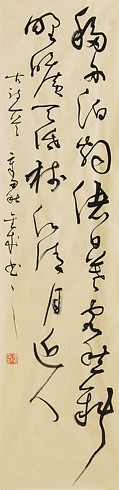 移舟泊烟渚日暮客愁新
野旷天低树江清月近人
古诗一首